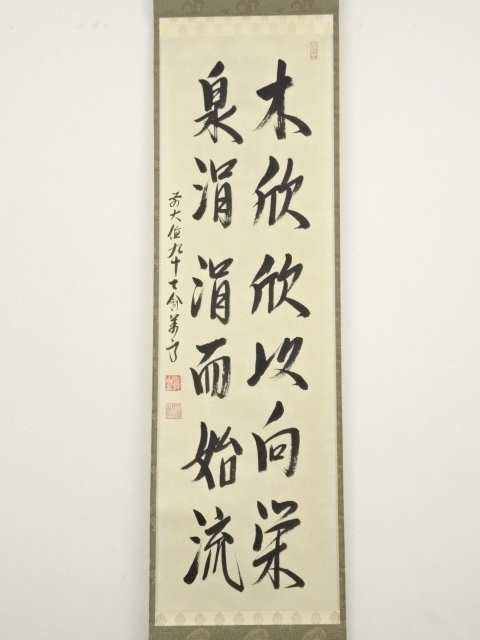 木欣欣以向栄
泉涓涓而始流
前大徳九十七翁萬